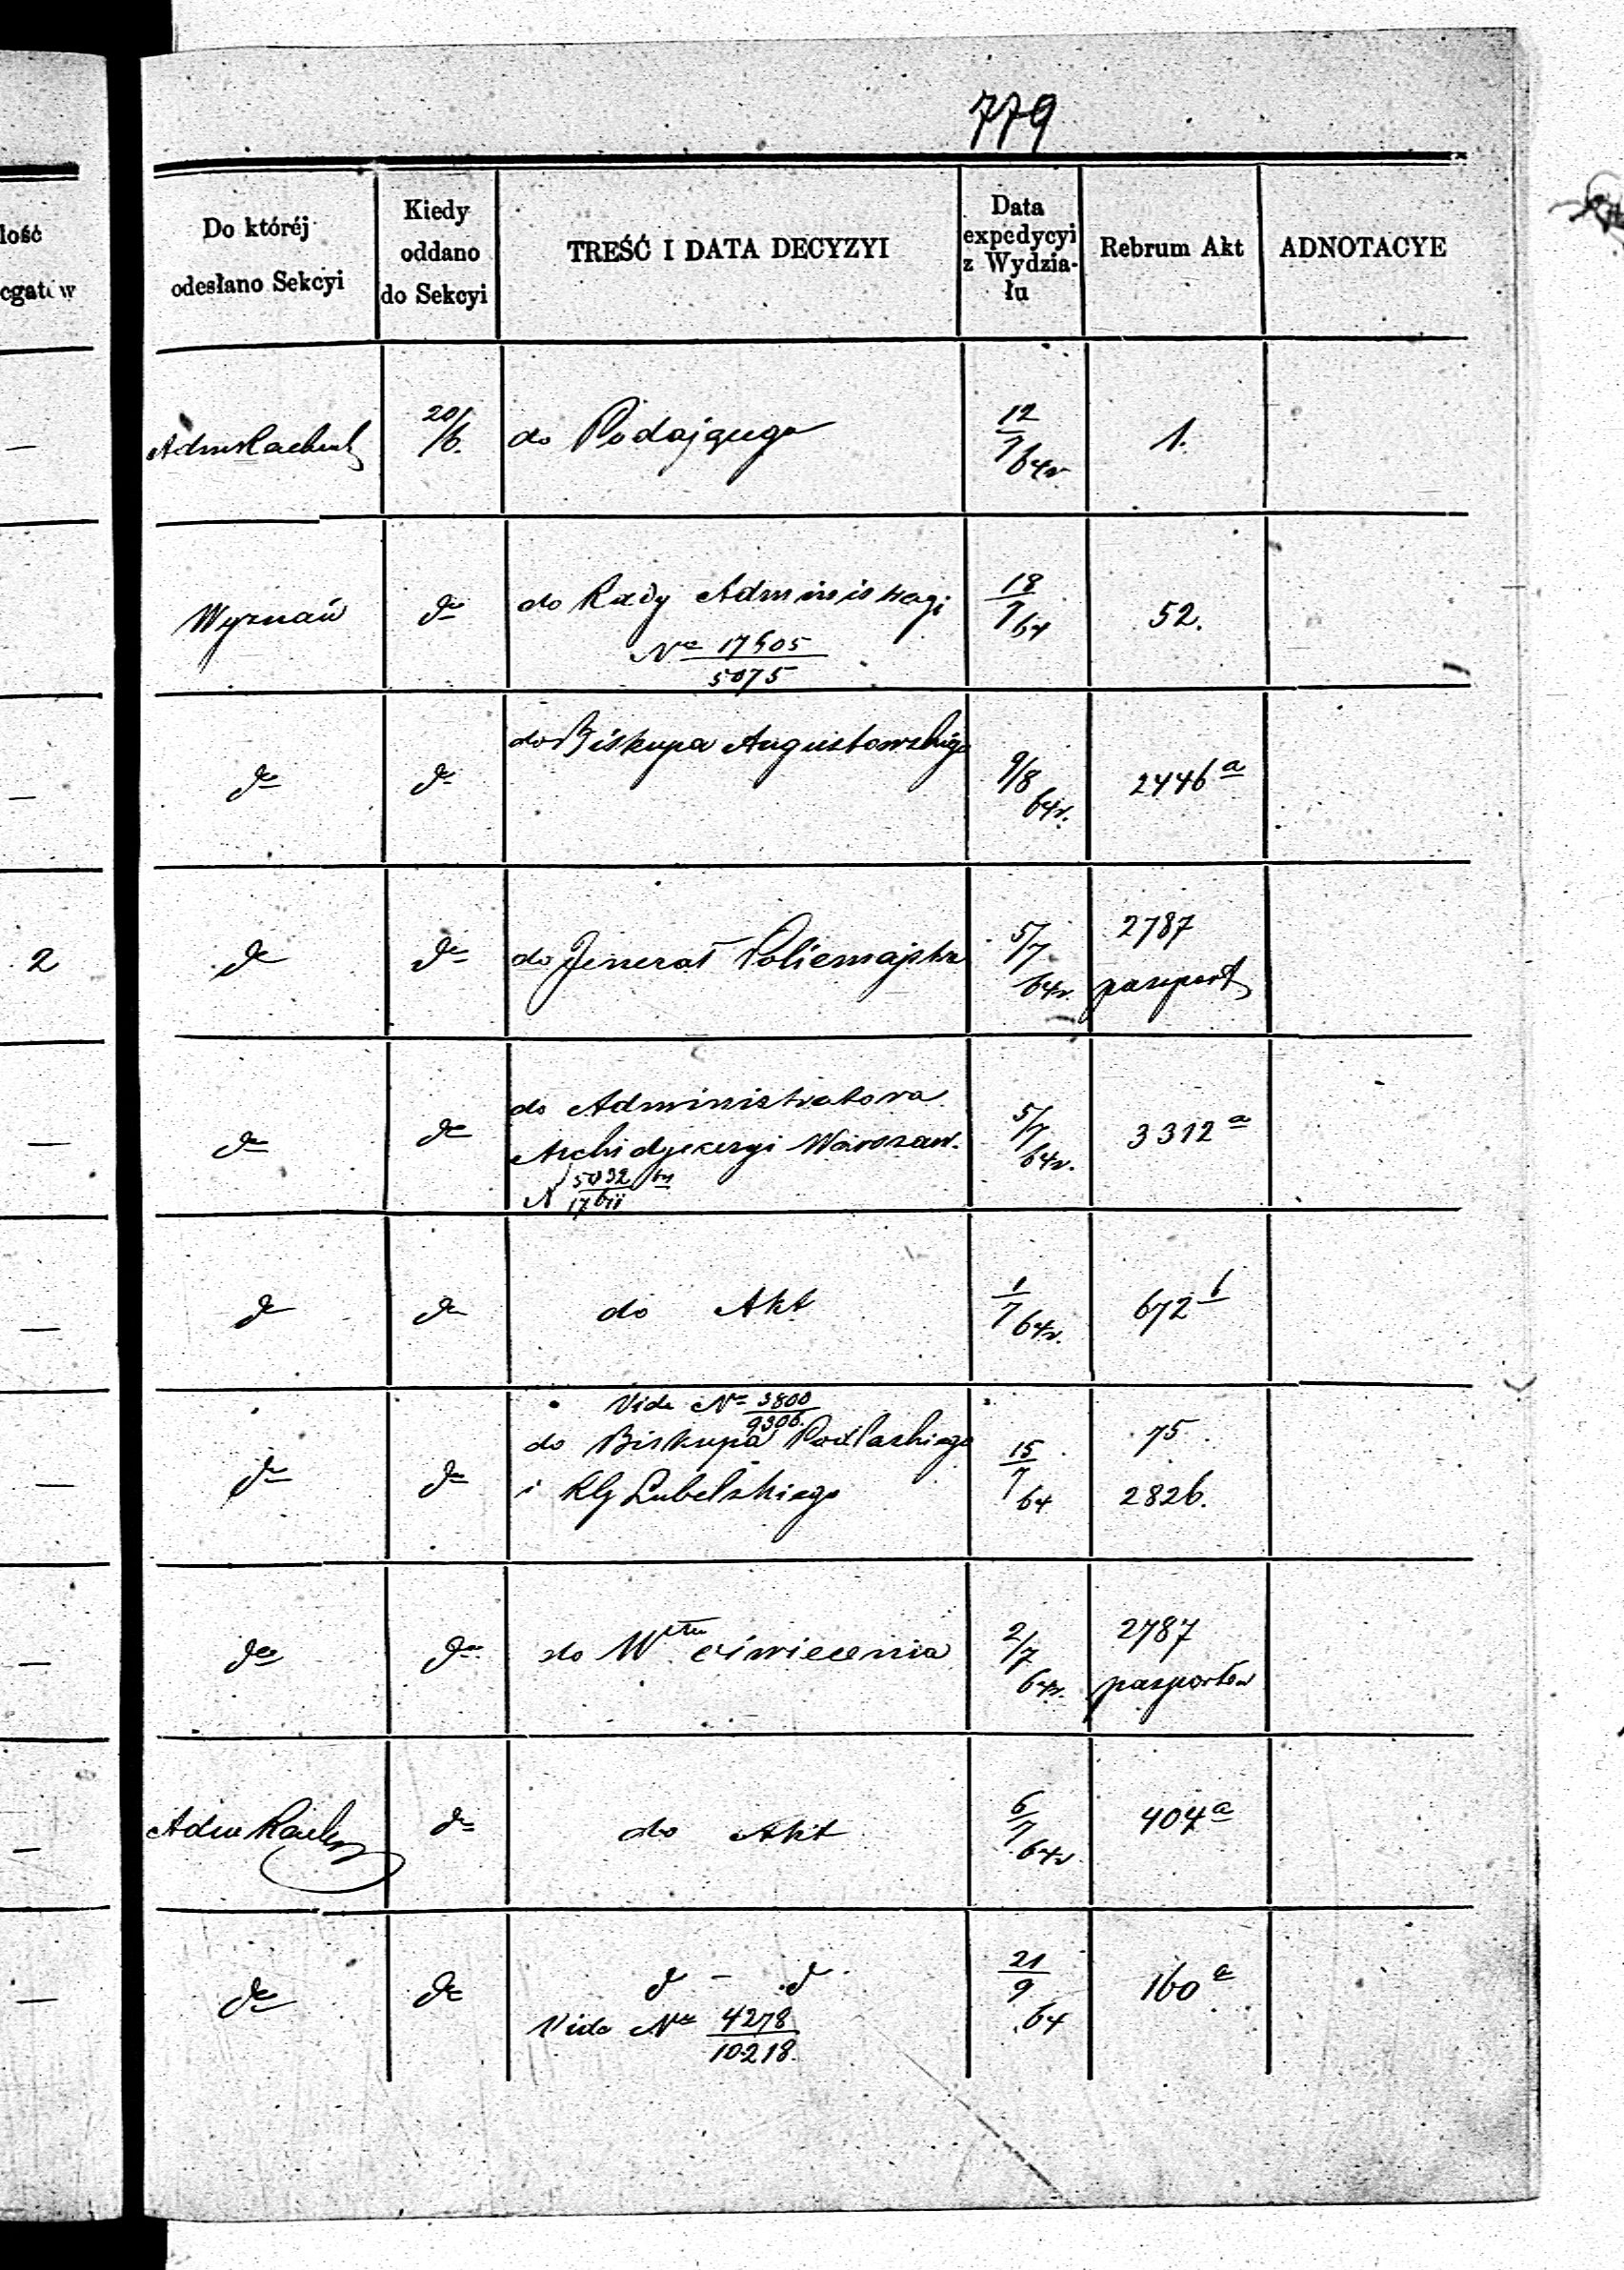 779
lość
cgatów
Do któréj
odesłano Sekcyi
Kiedy
oddano
do Sekcyi
TREŚĆ I DATA DECYZYI
Data
expedycyi
z Wydzia-
łu
Rebrum Akt
ADNOTACYE
—
20/6.
do Podającego
12/7 64r
1.
Wyznań
do
do Rady Administracyi
No 17605/5075
18/7 64
52.
—
do
do
do Biskupa Augustowskiego
9/8 64r.
2446 a
2
do
do
do Jenerał Policmajstra
5/7 64r.
2787
paszport
—
do
do
do Administratora
Archidyecezyi Warszaw.
N 5032/17611 64
5/7 64r.
3312 a
—
do
do
do Akt
1/7 64r.
672 b
—
do
do
Vide No 3800/9306.
do Biskupa Podlaskiego
i Lubelskiego
15/7 64
75
2826.
—
do
do
do oświecenia
2/7 64r.
2787
paszportów
—
Adm Rach
do
do Akt
6/7 64r
404 a
—
do
do
d - d
Vide No 4278/10218.
21/9 64
160 a